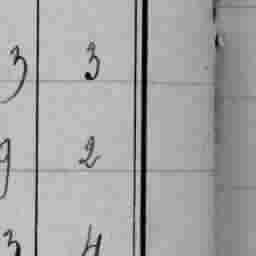 3 3
9 2
3 4